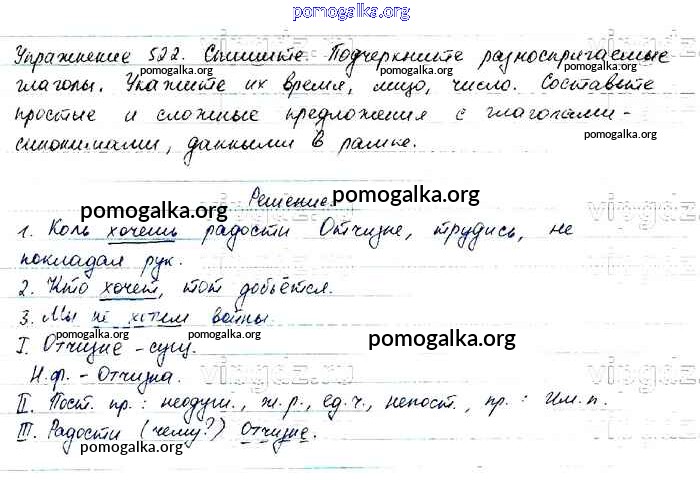 pomogalka.org
Упражнение 522. Спишите. Подчеркните разноспрягаемые
pomogalka.org pomogalka.org
глаголы. Укажите их время, лицо, число. Составьте
простые и сложные предложения с глаголами-
pomogalka.org
синонимами, данными в рамке.
Решение. pomogalka.org
pomogalka.org
1. Коль хочешь радости Отчизне, трудись, не
покладая рук.
2. Кто хочет, тот добьётся.
3. Мы не хотим войны.
pomogalka.org pomogalka.org
pomogalka.org
I. Отчизне - сущ.
Н.ф. - Отчизна.
II. Пост. пр.: неодуш., ж.р., ед.ч., непост., пр.: Им.п.
III. Радости (чему?) Отчизне.
pomogalka.org